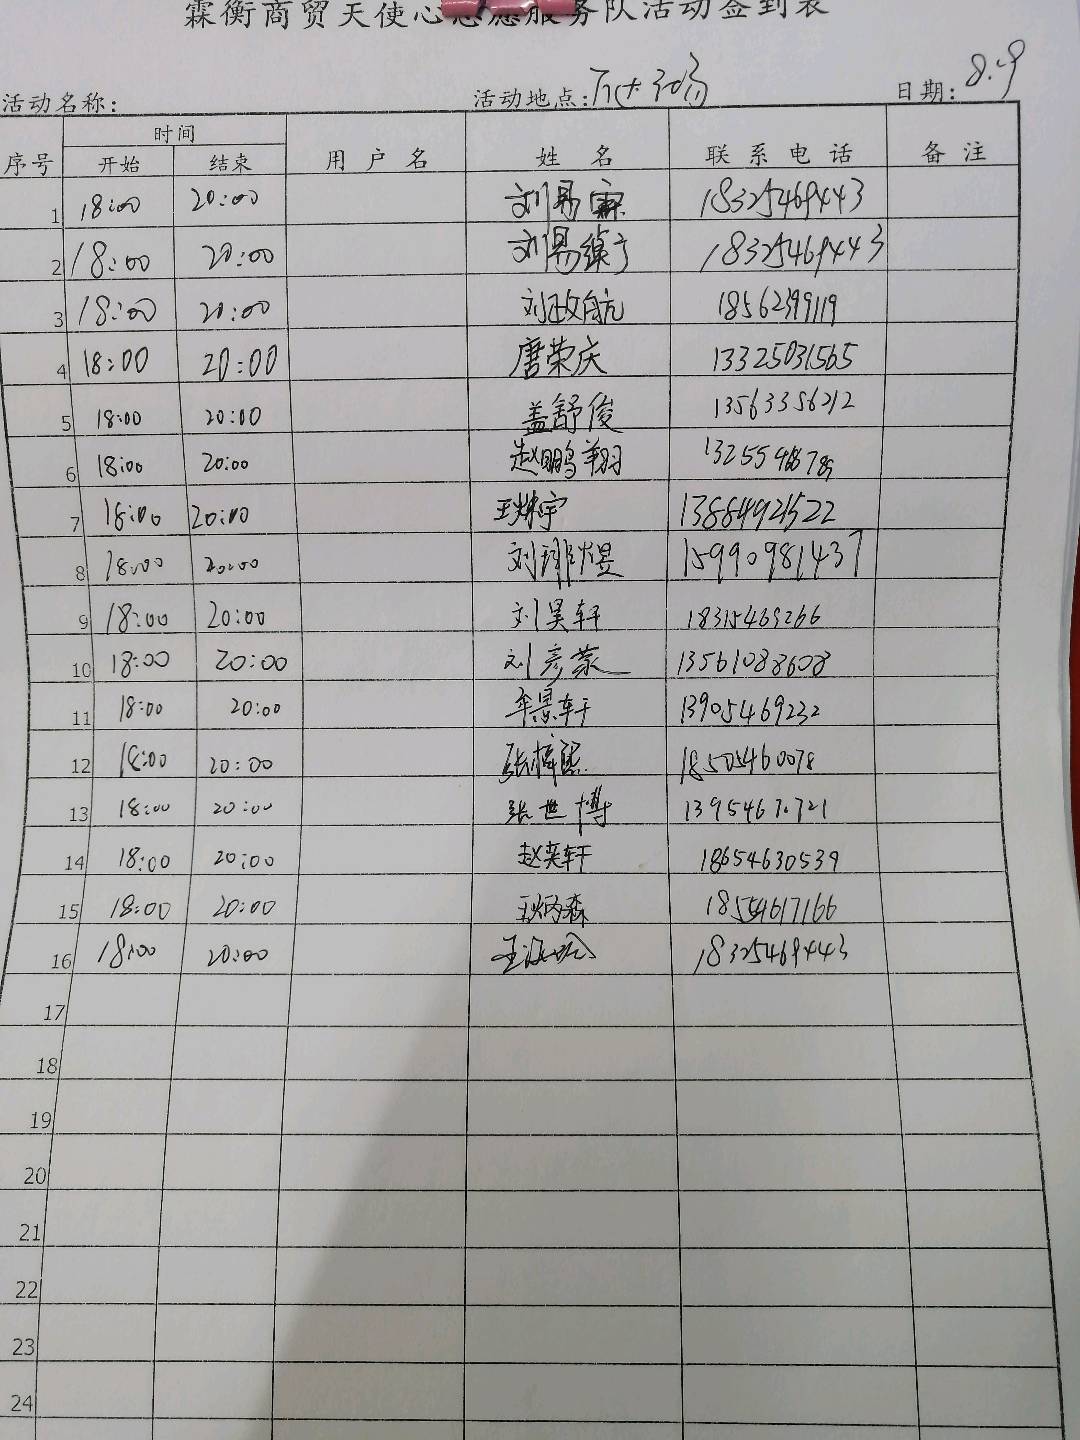 霖衡商贸天使心志愿服务队活动签到表
活动名称: 活动地点: 日期: 8.9
序号 时间 用户名 姓名 联系电话 备注
开始 结束
1 18:00 20:00 刘易霖 18325469443
2 18:00 20:00 刘易 18325469443
3 18:00 20:00 刘政航 18562399119
4 18:00 20:00 唐荣庆 13325031565
5 18:00 20:00 盖舒俊 13563356212
6 18:00 20:00 赵鹏翔
7 18:00 20:00 13884921522
8 18:00 20:00 15990981437
9 18:00 20:00 刘昊轩 18315469266
10 18:00 20:00 刘彦蒙 13561088608
11 18:00 20:00 牟景轩 13905469232
12 18:00 20:00 张梓熙 18505460078
13 18:00 20:00 张世博
14 18:00 20:00 赵奕轩 18654630539
15 18:00 20:00 18554617166
16 18:00 20:00 18325469443
17
18
19
20
21
22
23
24